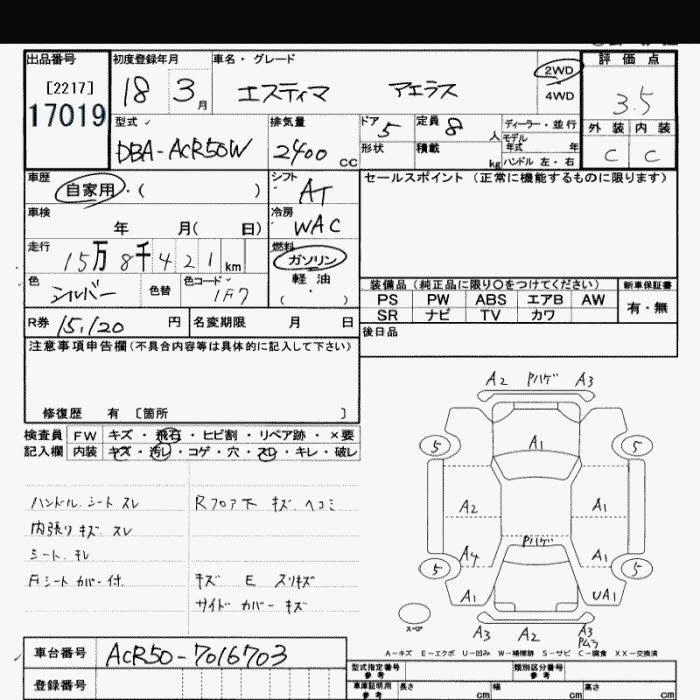 出品番号 初度登録年月 車名・グレード 評価点
[2217] 18 3月 エスティマ アエラス 2WD 3.5
17019 4WD
型式 排気量 ドア 定員 ディーラー・並行 外装 内装
DBA-ACR50W 2400cc 5 8人 モデル年式 年 C C
形状 積載 kg ハンドル 左・右
車歴 自家用・( ) シフト AT セールスポイント (正常に機能するものに限ります)
車検 年 月( 日) 冷房 WAC
走行 15万8千421km 燃料 ガソリン
色 シルバー 色替 色コード 1F7 軽油 ( ・ )
装備品 (純正品に限り○をつけてください) 新車保証書
PS PW ABS エアB AW 有・無
SR ナビ TV カワ
R券 15,120円 名変期限 月 日 後日品
注意事項申告欄(不具合内容等は具体的に記入して下さい)
修復歴 有 〔箇所 〕
検査員 FW キズ・飛石・ヒビ割・リペア跡・×要
記入欄 内装 キズ・汚レ・コゲ・穴・スレ・キレ・破レ
ハンドル.シート スレ Rフロア下 キズ ヘコミ
内張り キズ.スレ
シート.キレ
Fシート カバー付 キズ E スリキズ
サイド カバー キズ
A2 Pハゲ A3
5 A1 5
A2 A1
Pハゲ
A4 A1
5 5
A1 UA1
スペア
A3 A2 A3
Pムラ
A-キズ E-エクボ U-凹み W-補修跡 S-サビ C-腐食 XX-交換済
車台番号 ACR50-7016703
登録番号
型式指定番号 参考 類別区分番号 参考
車庫証明用 参考 長さ cm 幅 cm 高さ cm